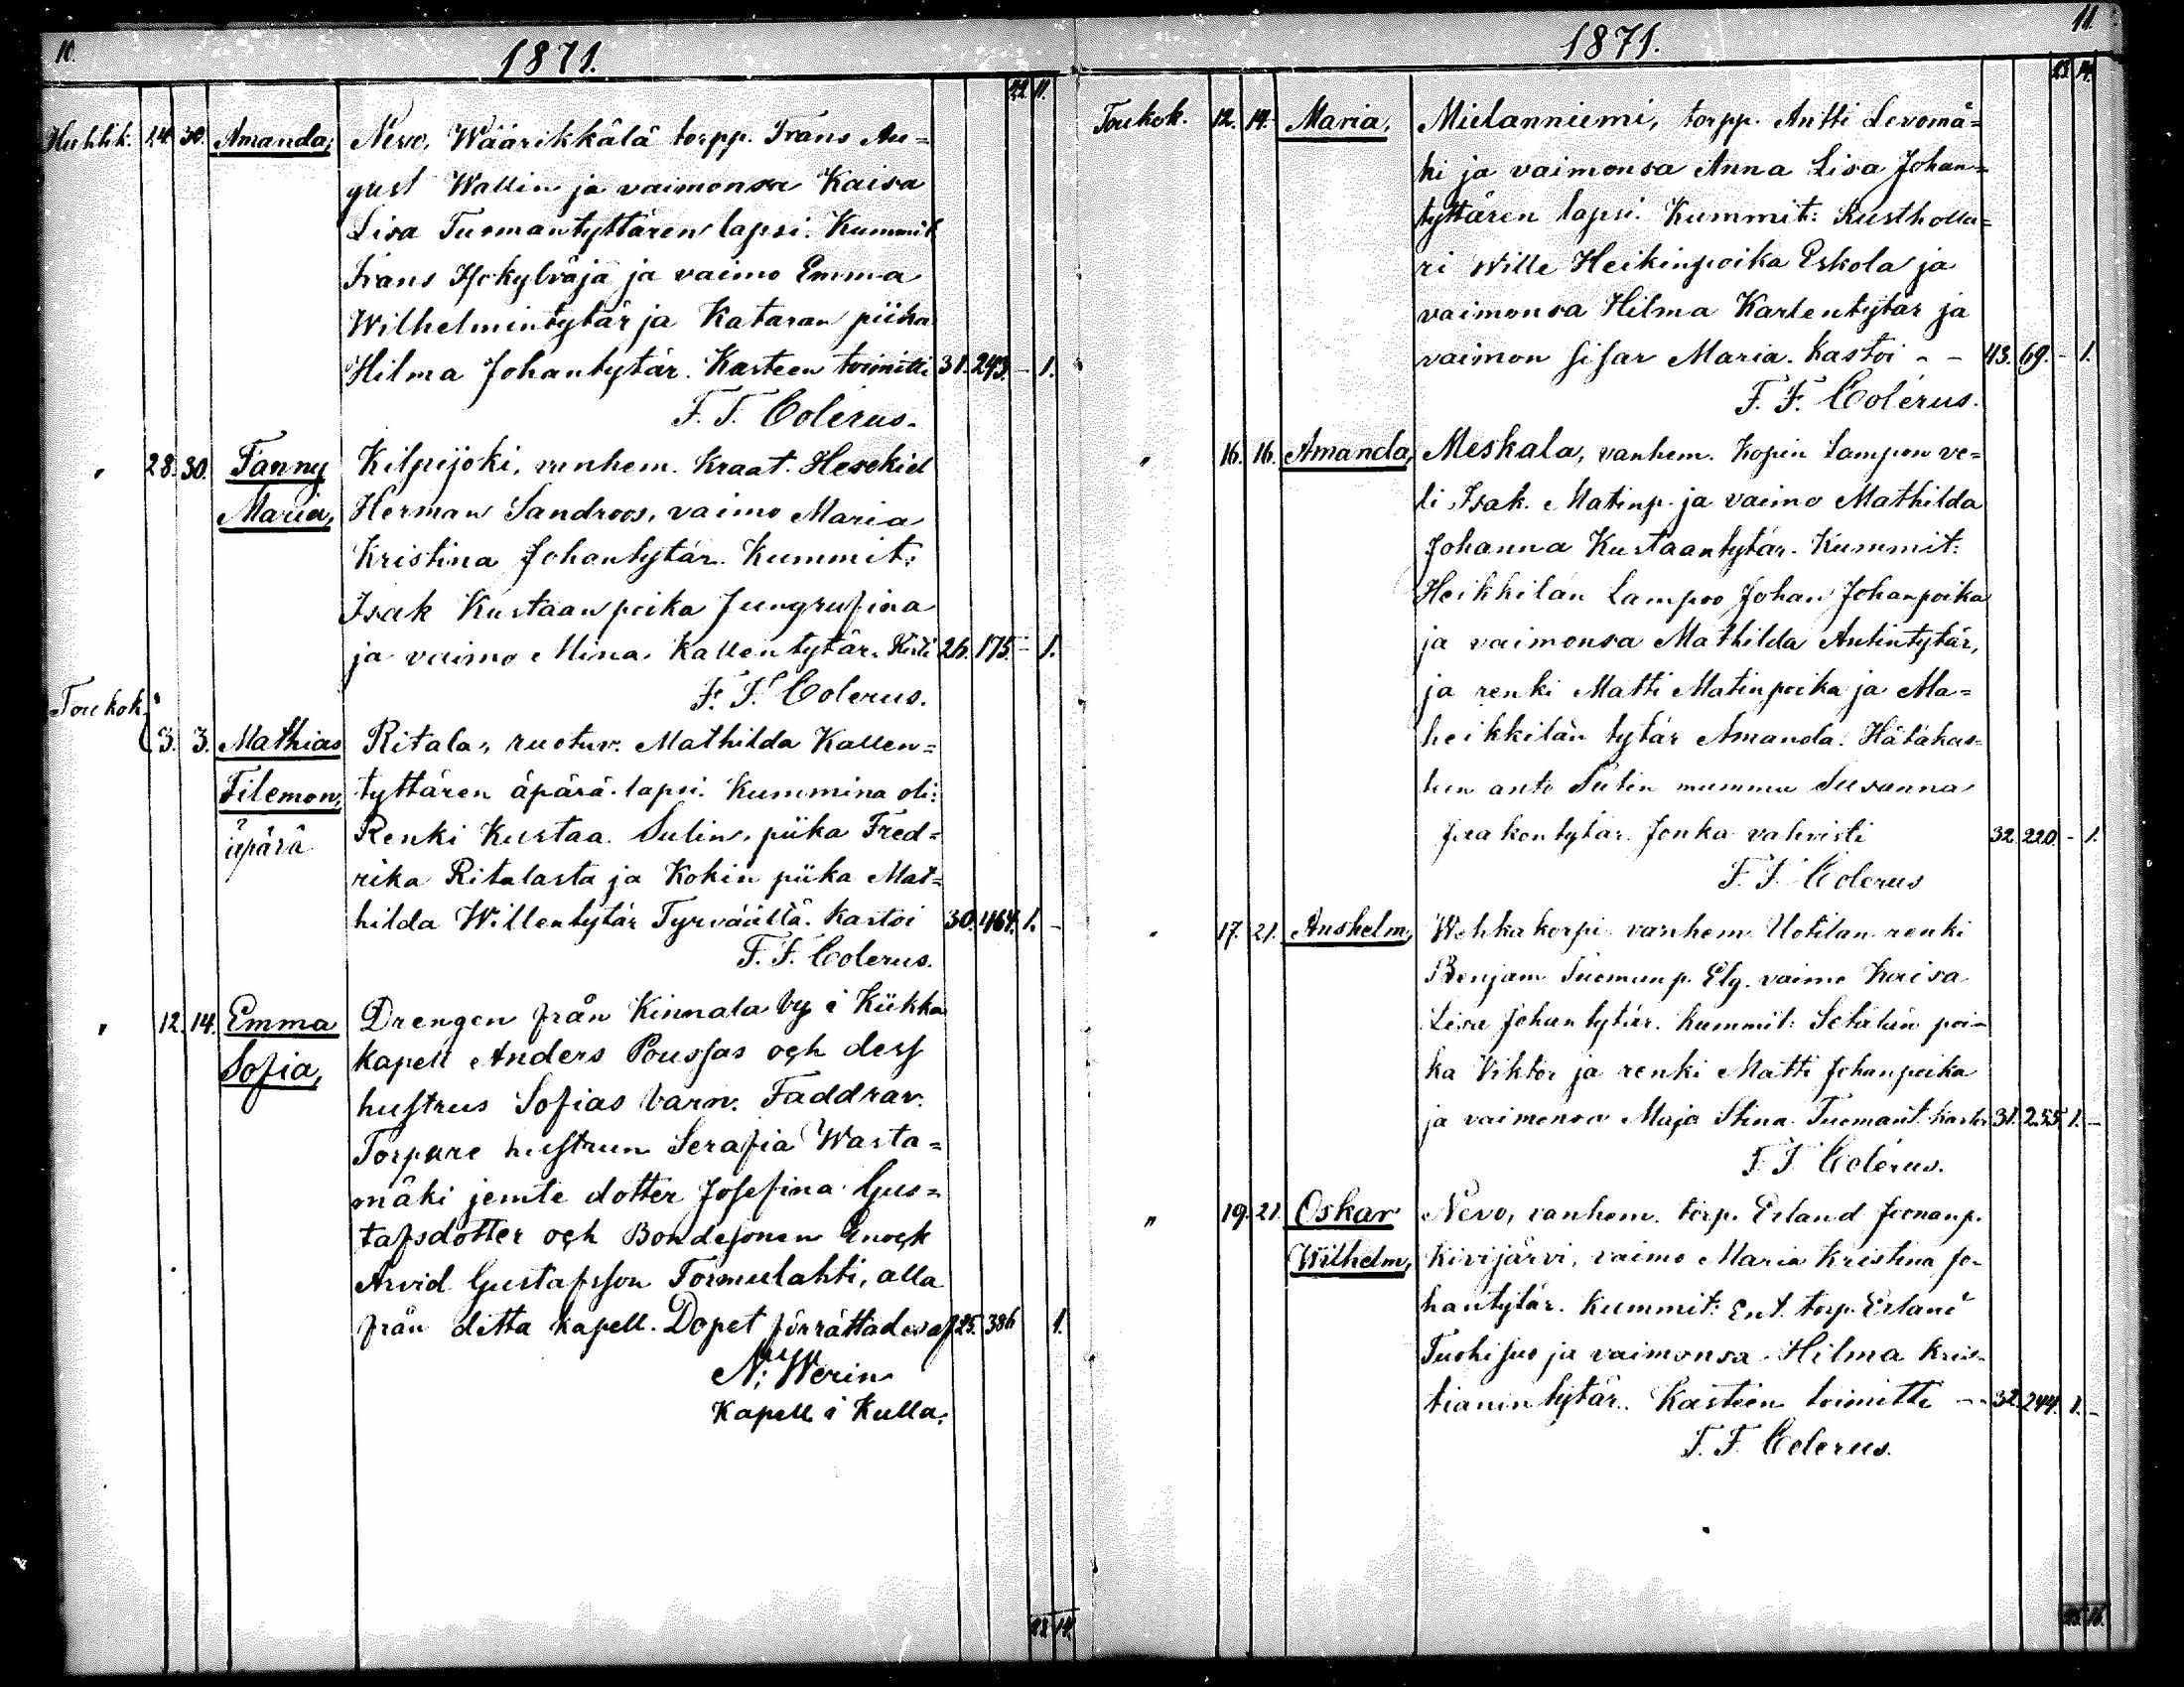 10.
1871.
22. 11.
Huhtik. 24. 30. Amanda, Nevo, Wäärikkälä torpp. Frans Au=
gust Wallin ja vaimonsa Kaisa
Lisa Tuomantyttären lapsi. Kummit
Frans Isokylväjä ja vaimo Emma
Wilhelmintytär ja Kataran piika
Hilma Johantytär. Kasteen toimitti 31. 243. - 1.
F. F. Colerus.
" 28. 30. Fanny Kilpijoki, vanhem. Kraat. Hesekiel
Maria, Herman Sandroos, vaimo Maria
Kristina Johantytär. Kummit:
Isak Kustaanpoika Jungrufina
ja vaimo Mina Kallentytär. 26. 175. - 1.
F. F. Colerus.
Toukok.
3. 3. Mathias Ritala, ruotuv. Mathilda Kallen=
Filemon, tyttären äpärä-lapsi. Kummina oli:
äpärä Renki Kustaa Sulin, piika Fred=
rika Ritalasta ja Kokin piika Mat=
hilda Willentytär Tyrväällä. Kastoi 30. 464. 1. -
F. F. Colerus.
" 12. 14. Emma Drengen från Kinnala by i Kiikka
Sofia, kapell Anders Poussas och dess
hustrus Sofias barn. Faddrar.
Torpare hustrun Serafia Wasta=
mäki jemte dotter Josefina Gus=
tafsdotter och Bondesonen Enock
Arvid Gustafsson Tormulahti, alla
från ditta kapell. Dopet förrättades af 25. 386 1.
N: Werin
Kapell. i Kulla.
22. 14.
11.
1871.
23. 14.
Toukok. 12. 14. Maria, Mielanniemi, torpp. Antti Levomä=
ki ja vaimonsa Anna Lisa Johan=
tyttären lapsi. Kummit: Rusthollа=
ri Wille Heikinpoika Eskola ja
vaimonsa Hilma Karlentytär ja
vaimon sisar Maria. Kastoi - - 43. 69. - 1.
F. F. Colérus.
" 16. 16. Amanda, Meskala, vanhem. Kopin Lampon ve=
li Isak Matinp. ja vaimo Mathilda
Johanna Kustaantytär. Kummit:
Heikkilän Lampoo Johan Johanpoika
ja vaimonsa Mathilda Antintytär,
ja renki Matti Matinpoika ja Ma=
heikkilän tytär Amanda. Hätäkas=
teen anto Sulin mummu Susanna
Jaakontytär. Jonka vahvisti 32. 220. - 1.
F. F. Colerus
" 17. 21. Anshelm, Wehkakorpi vanhem. Uotilan renki
Benjam Tuomanp. Elg. vaimo Kaisa
Lisa Johantytär. Kummit: Setälän poi=
ka Viktor ja renki Matti Johanpoika
ja vaimonsa Maja Stina Tuomant. Kastoi 31. 255 1. -
F. F. Colérus.
" 19. 21. Oskar Nevo, vanhem. torp. Erland Joonanp.
Wilhelm, Kivijärvi, vaimo Maria Kristina Jo=
hantytär. Kummit: Ent. torp. Erland
Tuohisuo ja vaimonsa Hilma Kris=
tianintytär. Kasteen toimitti - - 32. 244. 1. -
F. F. Colerus.
25. 16.